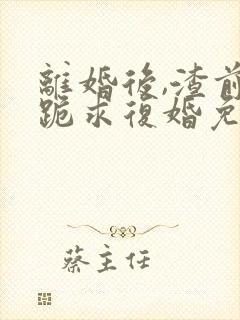 離婚後,渣前
跪求復婚免
蔡主任